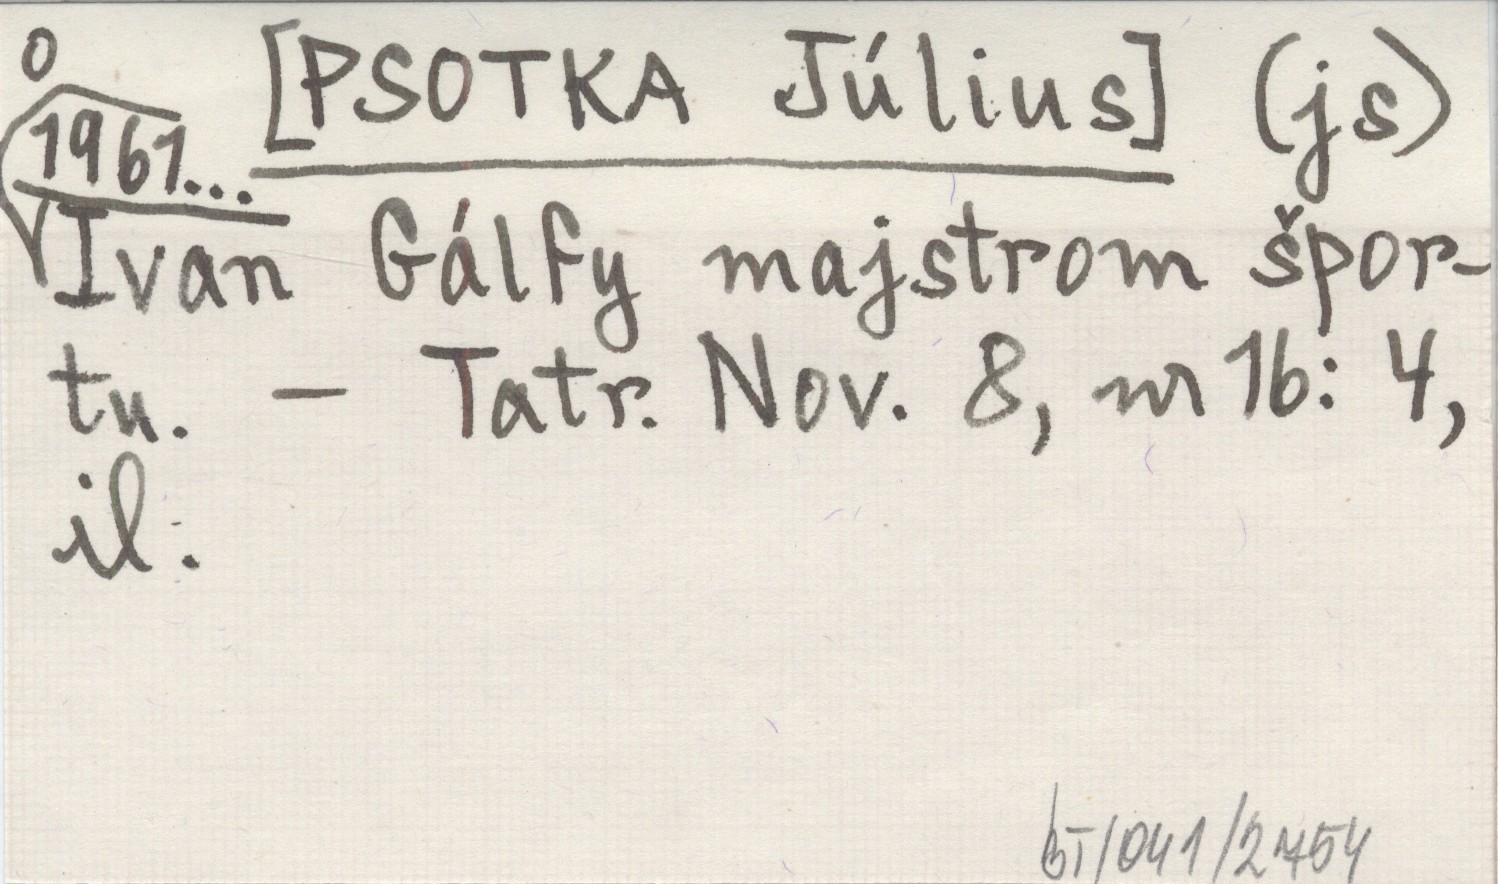 O [PSOTKA Július] (js)
1961...
Ivan Gálfy majstrom špor-
tu. – Tatr. Nov. 8, nr 16: 4,
il.
BT/041/2754